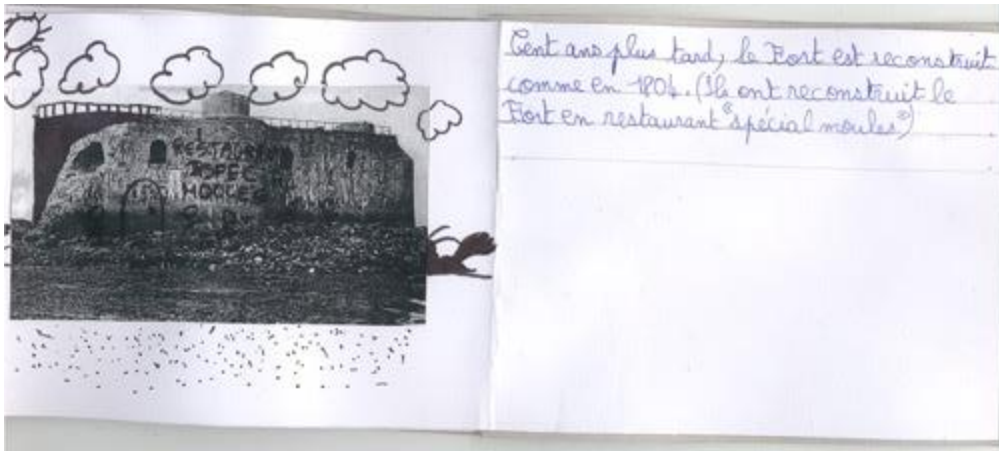 RESTAURANT
SPEC
MOULES
Cent ans plus tard, le Fort est reconstruit
comme en 1804. (Ils ont reconstruit le
Fort en restaurant "spécial moules")